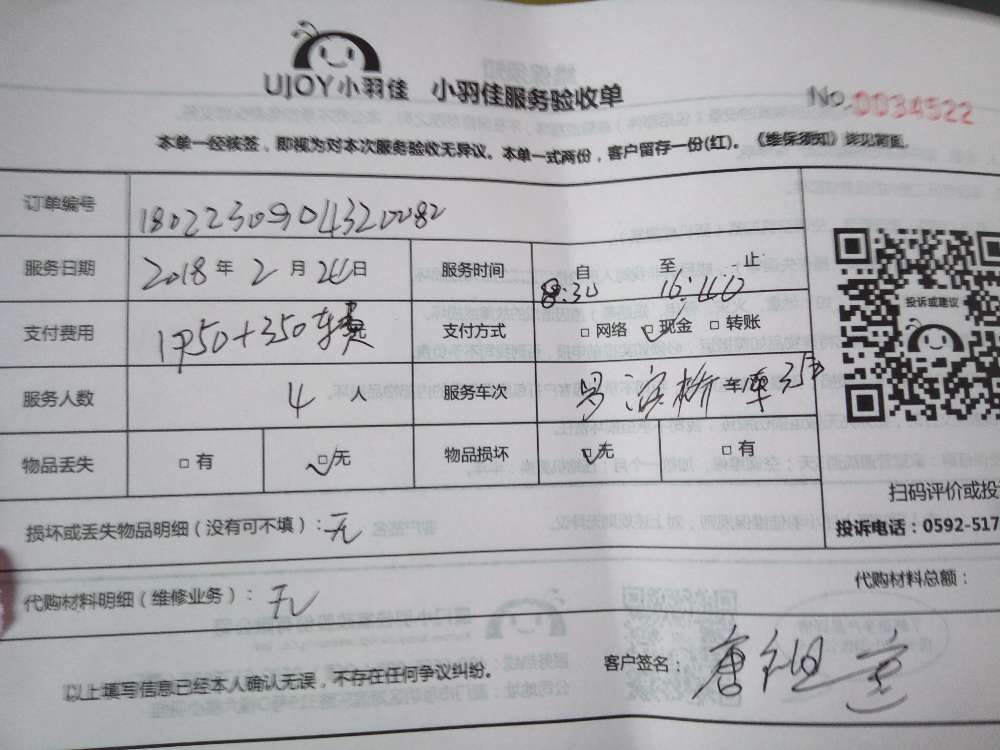 UJOY小羽佳 小羽佳服务验收单 No.0034522
本单一经核签，即视为对本次服务验收无异议。本单一式两份，客户留存一份(红)。《维保须知》详见背面。
订单编号 1802230904320082
服务日期 2018年2月24日 服务时间 自 8:30 至 止
支付费用 1750+350车费 支付方式 □网络 □现金 □转账
投诉或建议
服务人数 4人 服务车次
物品丢失 □有 □无 物品损坏 □无 □有
扫码评价或投
损坏或丢失物品明细（没有可不填）：无
投诉电话：0592-517
代购材料明细（维修业务）：无 代购材料总额：
以上填写信息已经本人确认无误，不存在任何争议纠纷。 客户签名：